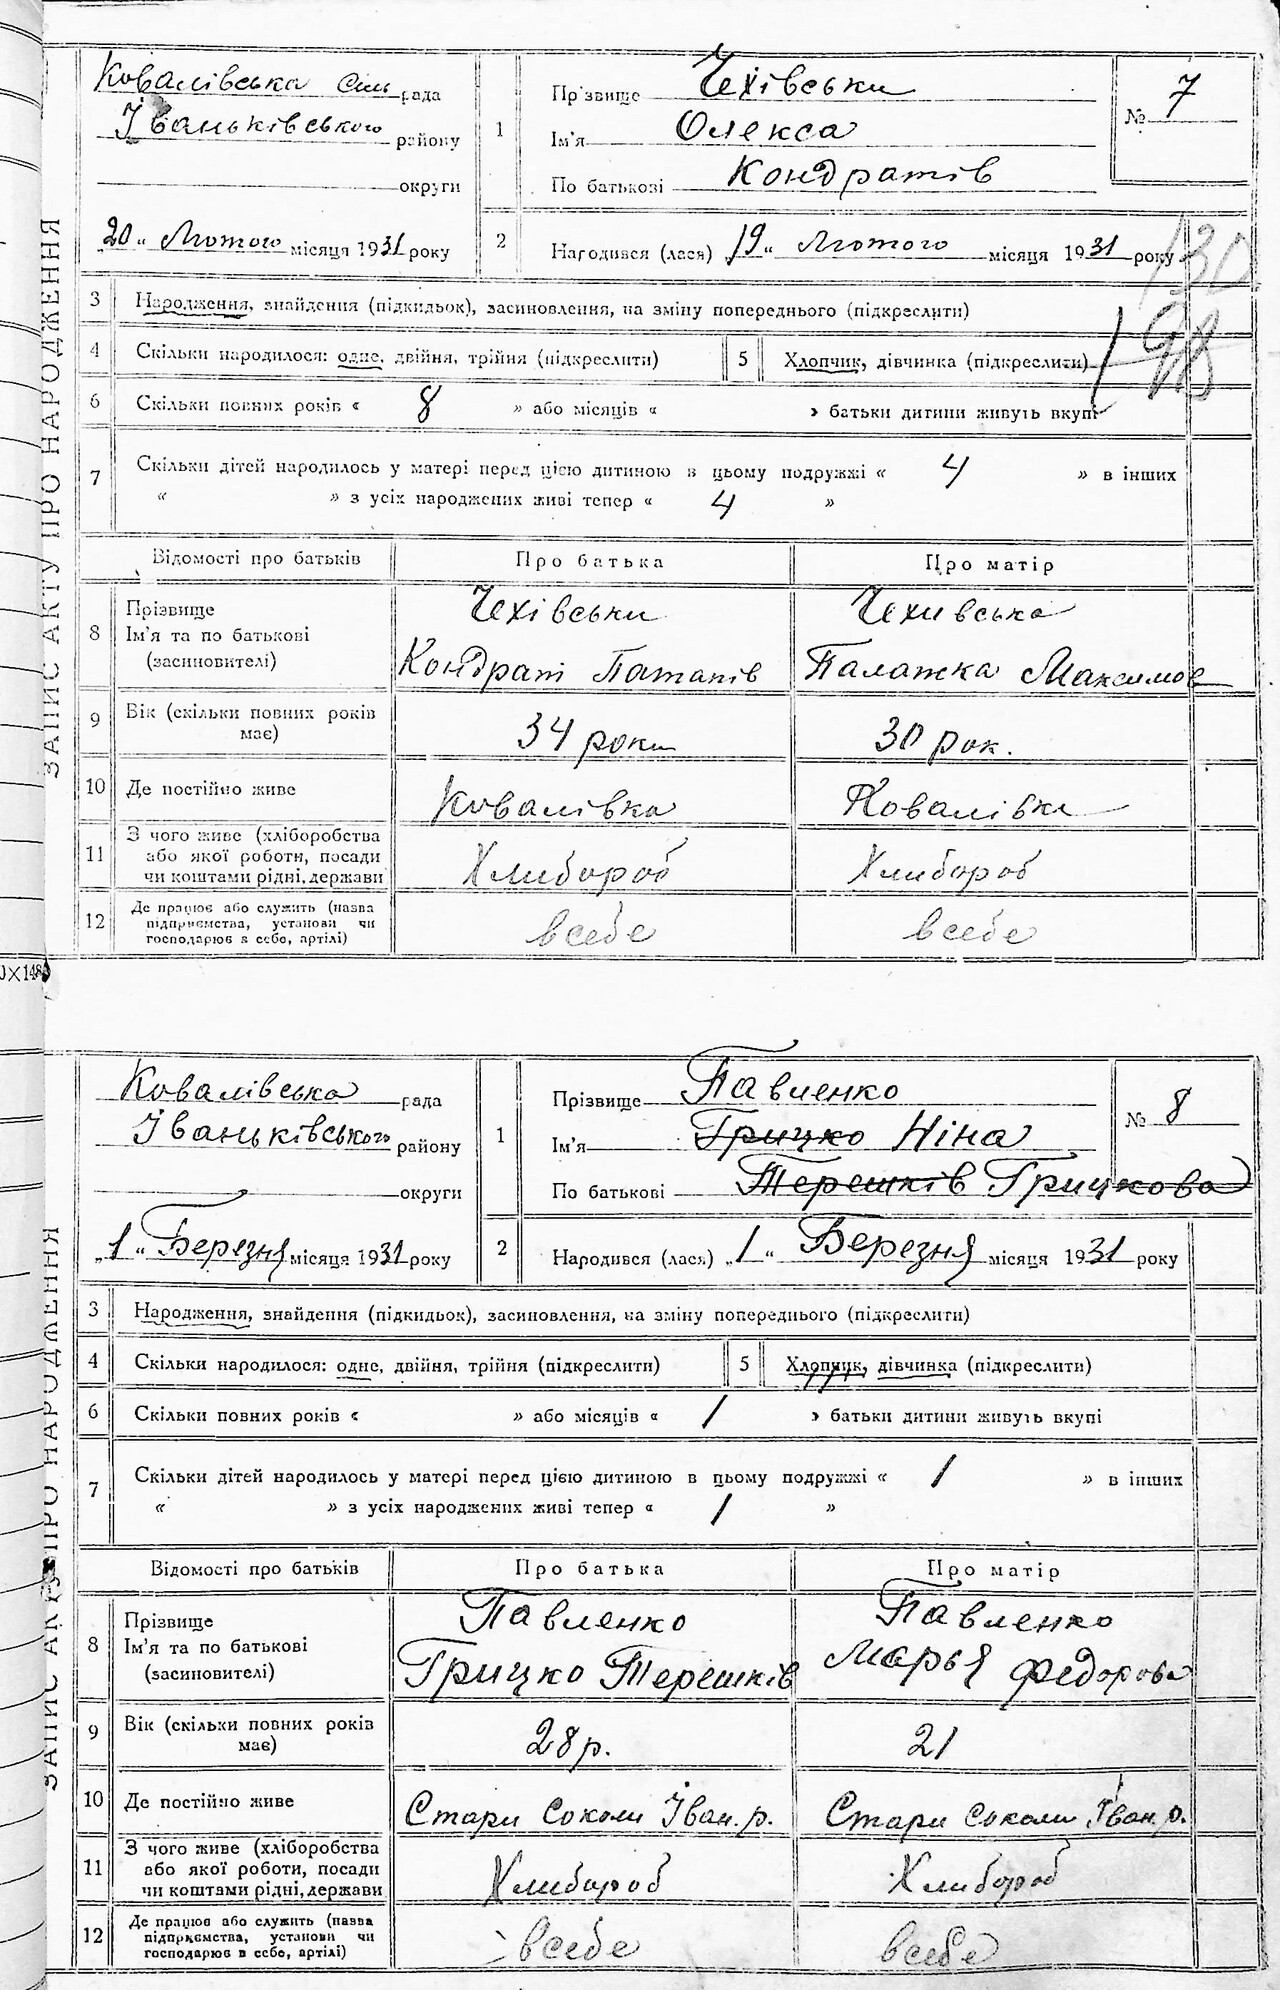 ЗАПИС АКТУ ПРО НАРОДЖЕННЯ
Ковалівська Сіль рада
Іваньківського району
округи
„20“ Лютого місяця 1931 року
1
Прізвище Чехівськи
Ім'я Олекса
По батькові Кондратів
№ 7
2
Народився (лася) „19“ Лютого місяця 1931 року
130
198
3 Народження, знайдення (підкидьок), засиновлення, на зміну попереднього (підкреслити)
4 Скільки народилося: одне, двійня, трійня (підкреслити)
5 Хлопчик, дівчинка (підкреслити)
6 Скільки повних років « 8 » або місяців « » батьки дитини живуть вкупі
7 Скільки дітей народилось у матері перед цією дитиною в цьому подружжі « 4 » в інших
« » з усіх народжених живі тепер « 4 »
Відомості про батьків Про батька Про матір
8 Прізвище Чехівськи Чехивська
Ім'я та по батькові
(засиновителі) Кондрат Потапів Палажка Максимов
9 Вік (скільки повних років має) 34 роки 30 рок.
10 Де постійно живе Ковалівка Ковалівка
11 З чого живе (хліборобства
або якої роботи, посади
чи коштами рідні, держави Хлибороб Хлибороб
12 Де працює або служить (назва
підприємства, установи чи
господарює в себе, артілі) всебе всебе
0×148
ЗАПИС АКТУ ПРО НАРОДЖЕННЯ
Ковалівська рада
Іваньківського району
округи
„1“ Березня місяця 1931 року
1
Прізвище Павленко
Ім'я Грицко Ніна
По батькові Терешків Грицкова
№ 8
2
Народився (лася) „1“ Березня місяця 1931 року
3 Народження, знайдення (підкидьок), засиновлення, на зміну попереднього (підкреслити)
4 Скільки народилося: одне, двійня, трійня (підкреслити)
5 Хлопчик, дівчинка (підкреслити)
6 Скільки повних років « » або місяців « 1 » батьки дитини живуть вкупі
7 Скільки дітей народилось у матері перед цією дитиною в цьому подружжі « 1 » в інших
« » з усіх народжених живі тепер « 1 »
Відомості про батьків Про батька Про матір
8 Прізвище Павленко Павленко
Ім'я та по батькові
(засиновителі) Грицко Терешків Марья Федорова
9 Вік (скільки повних років має) 28 р. 21
10 Де постійно живе Стари Соколи Іван. р. Стари Соколи Іван. р.
11 З чого живе (хліборобства
або якої роботи, посади
чи коштами рідні, держави Хлибороб Хлибороб
12 Де працює або служить (назва
підприємства, установи чи
господарює в себе, артілі) всебе всебе